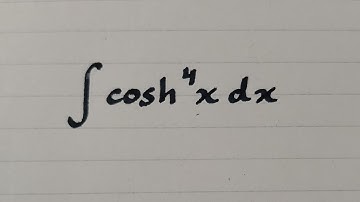 ∫ cosh⁴x dx